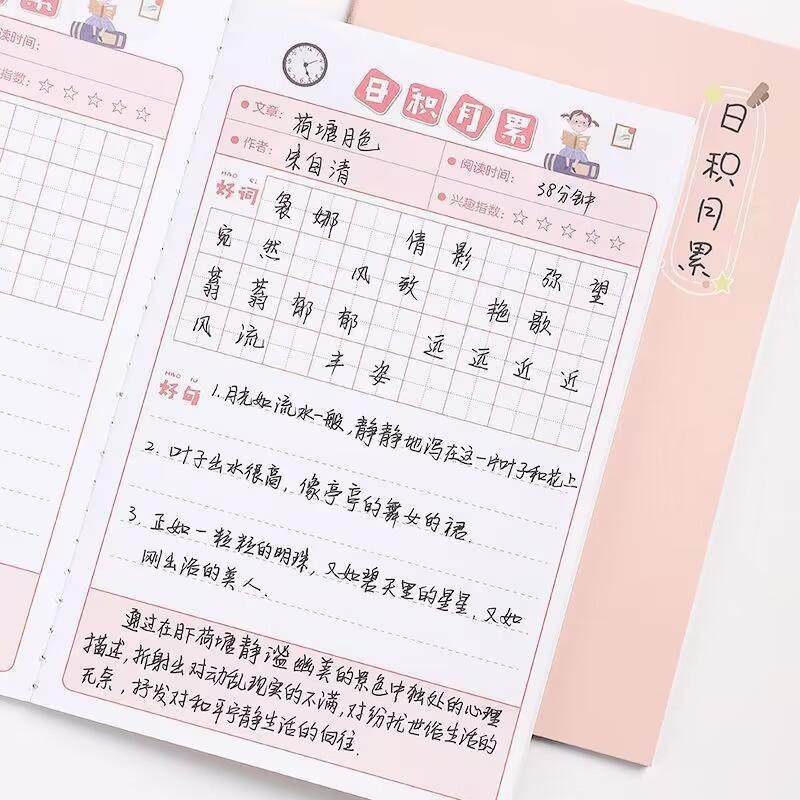 读时间:
指数: ☆☆☆☆☆
日积月累
文章: 荷塘月色
作者: 宋自清
阅读时间: 38分钟
兴趣指数: ☆☆☆☆☆
HAO CI
好词
袅娜 倩影 弥望
宛然 风致 艳歌
蓊蓊郁郁 远远近近
风流 丰姿
HAO JU
好句
1.月光如流水一般,静静地泻在这一片叶子和花上
2.叶子出水很高,像亭亭的舞女的裙.
3.正如一粒粒的明珠,又如碧天里的星星,又如
刚出浴的美人.
通过在月下荷塘静谧幽美的景色中独处的心理
描述,折射出对动乱现实的不满,对纷扰世俗生活的
无奈,抒发对和平宁静生活的向往.
日积月累